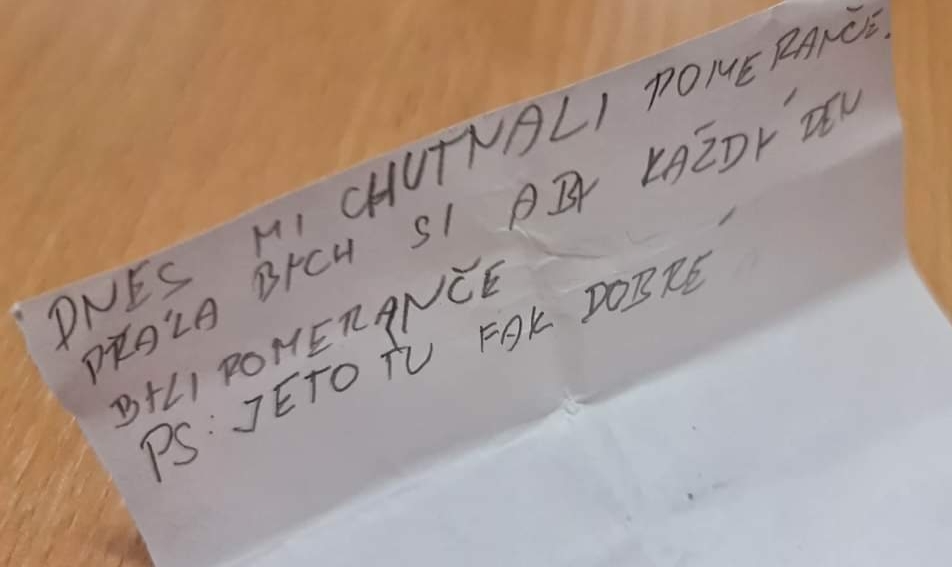 DNES MI CHUTNALI POMERANČE.
PŘÁLA BYCH SI ABY KAŽDÝ DEN
BYLI POMERANČE
PS: JETO TU FAK DOBRÉ